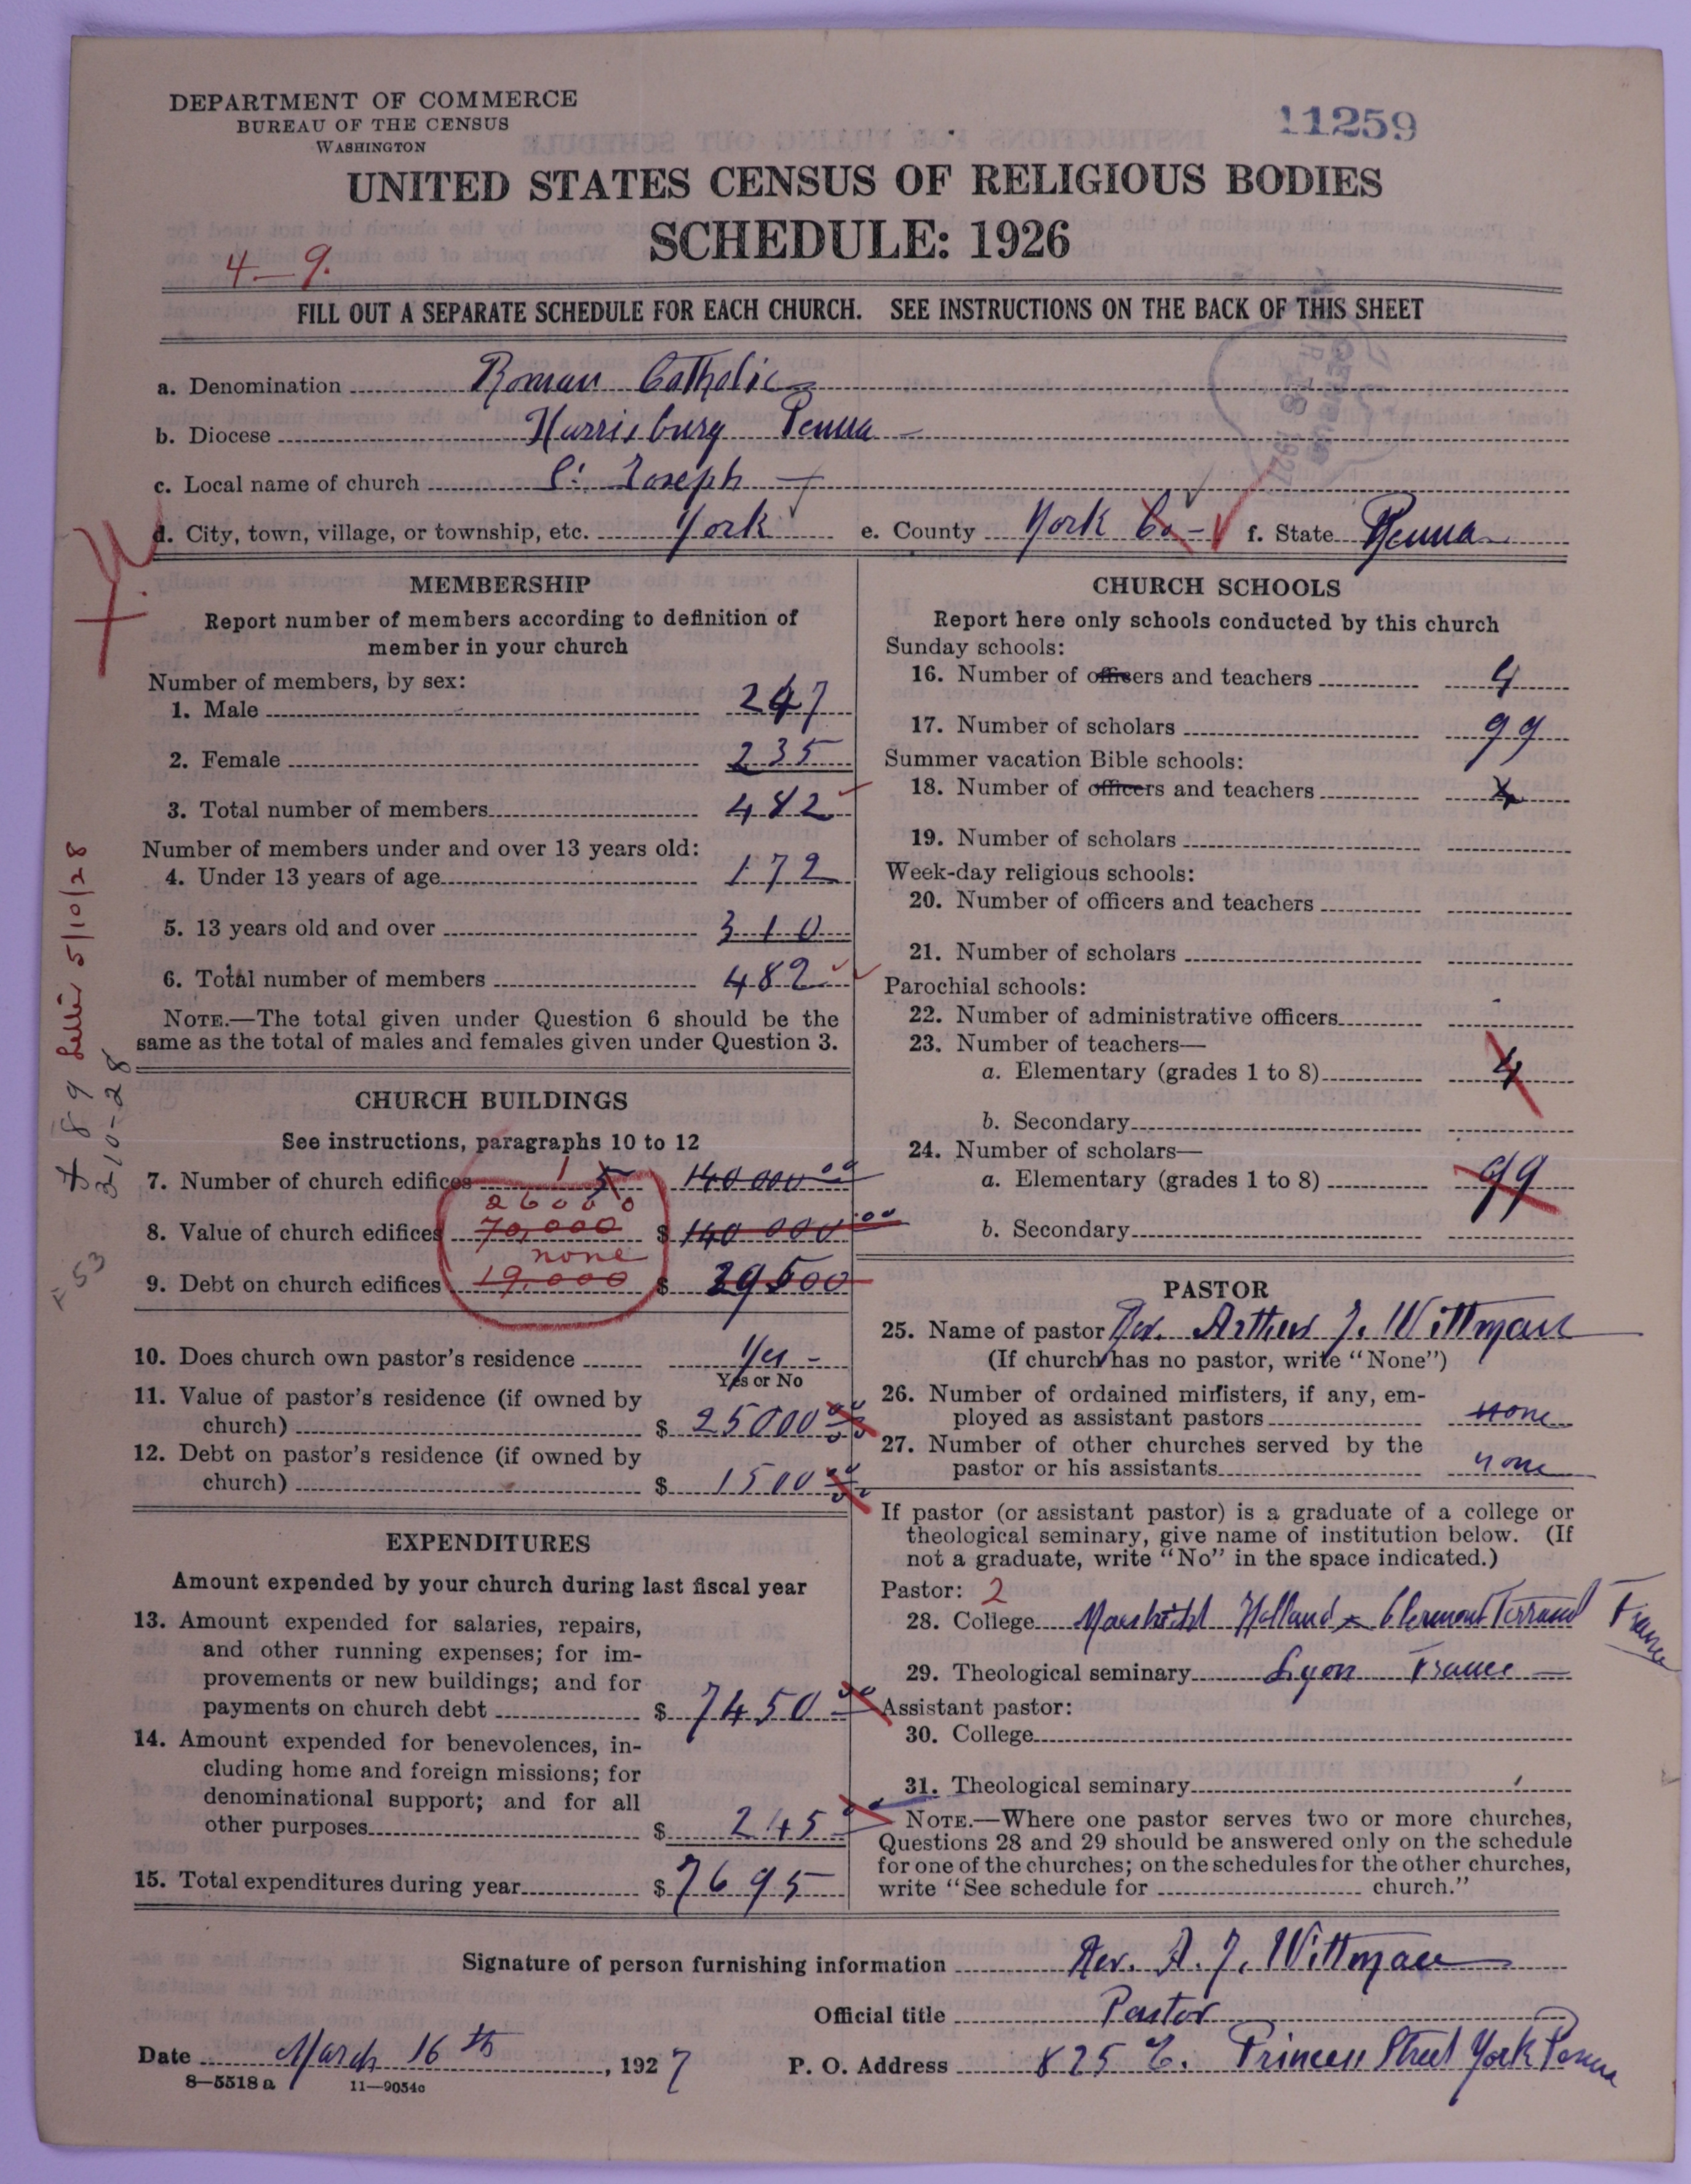 DEPARTMENT OF COMMERCE
BUREAU OF THE CENSUS
WASHINGTON
11259
UNITED STATES CENSUS OF RELIGIOUS BODIES
SCHEDULE: 1926
4-9.
FILL OUT A SEPARATE SCHEDULE FOR EACH CHURCH. SEE INSTRUCTIONS ON THE BACK OF THIS SHEET
a. Denomination Roman Catholic
b. Diocese Harrisburg Penna
c. Local name of church S: Joseph
d. City, town, village, or township, etc. York e. County York Co - f. State Penna
MEMBERSHIP
Report number of members according to definition of
member in your church
Number of members, by sex:
1. Male 247
2. Female 235
3. Total number of members 482
Number of members under and over 13 years old:
4. Under 13 years of age 172
5. 13 years old and over 310
6. Total number of members 482
NOTE.—The total given under Question 6 should be the
same as the total of males and females given under Question 3.
CHURCH BUILDINGS
See instructions, paragraphs 10 to 12
7. Number of church edifices 1 5 140 000 00
26000
8. Value of church edifices 70,000 $ 140 000 00
none
9. Debt on church edifices 19.000 $ 29500
10. Does church own pastor's residence Yes -
Yes or No
11. Value of pastor's residence (if owned by
church) $ 25000 00
12. Debt on pastor's residence (if owned by
church) $ 1500 00
EXPENDITURES
Amount expended by your church during last fiscal year
13. Amount expended for salaries, repairs,
and other running expenses; for im-
provements or new buildings; and for
payments on church debt $ 7450 00
14. Amount expended for benevolences, in-
cluding home and foreign missions; for
denominational support; and for all
other purposes $ 245 00
15. Total expenditures during year $ 7695
CHURCH SCHOOLS
Report here only schools conducted by this church
Sunday schools:
16. Number of officers and teachers 4
17. Number of scholars 99
Summer vacation Bible schools:
18. Number of officers and teachers x
19. Number of scholars
Week-day religious schools:
20. Number of officers and teachers
21. Number of scholars
Parochial schools:
22. Number of administrative officers
23. Number of teachers—
a. Elementary (grades 1 to 8) 4
b. Secondary
24. Number of scholars—
a. Elementary (grades 1 to 8) 99
b. Secondary
PASTOR
25. Name of pastor Rev. Arthur J. Wittman
(If church has no pastor, write "None")
26. Number of ordained ministers, if any, em-
ployed as assistant pastors none
27. Number of other churches served by the
pastor or his assistants none
If pastor (or assistant pastor) is a graduate of a college or
theological seminary, give name of institution below. (If
not a graduate, write "No" in the space indicated.)
Pastor: 2
28. College Holland Clermont Ferrand France
29. Theological seminary Lyon France
Assistant pastor:
30. College
31. Theological seminary
NOTE.—Where one pastor serves two or more churches,
Questions 28 and 29 should be answered only on the schedule
for one of the churches; on the schedules for the other churches,
write "See schedule for church."
Signature of person furnishing information Rev. A. J. Wittman
Official title Pastor
Date March 16 th, 1927 P. O. Address 825 E. Princess Street York Penna
8—5518 a 11—9054c
5/10/28
3-10-28
F 53